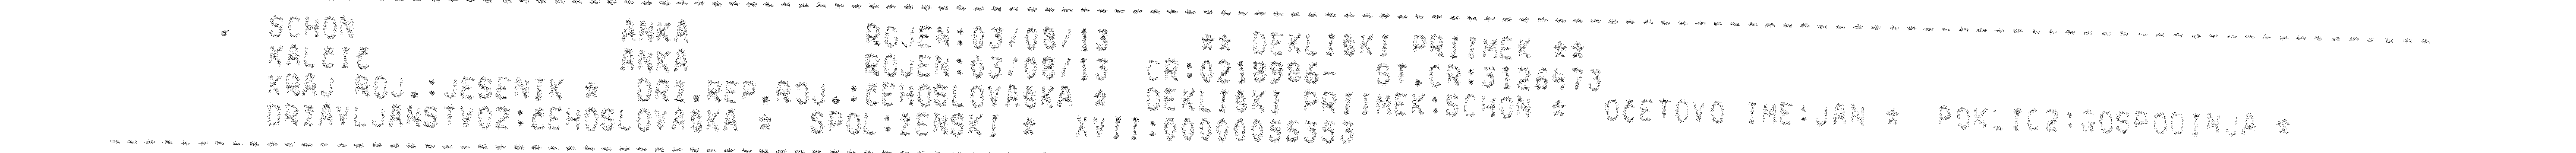 SCHON ANKA ROJEN:03/08/13 ** DEKLIŠKI PRIIMEK **
KALČIČ ANKA ROJEN:03/08/13 CR:0218986- ST.CR:3126473
KRAJ ROJ.:JESENIK * DRŽ.REP.ROJ.:ČEHOSLOVAŠKA * DEKLIŠKI PRIIMEK:SCHON * OČETOVO IME:JAN * POKLIC2:GOSPODINJA *
DRŽAVLJANSTVO2:ČEHOSLOVAŠKA * SPOL:ŽENSKI * XVII:00000055353